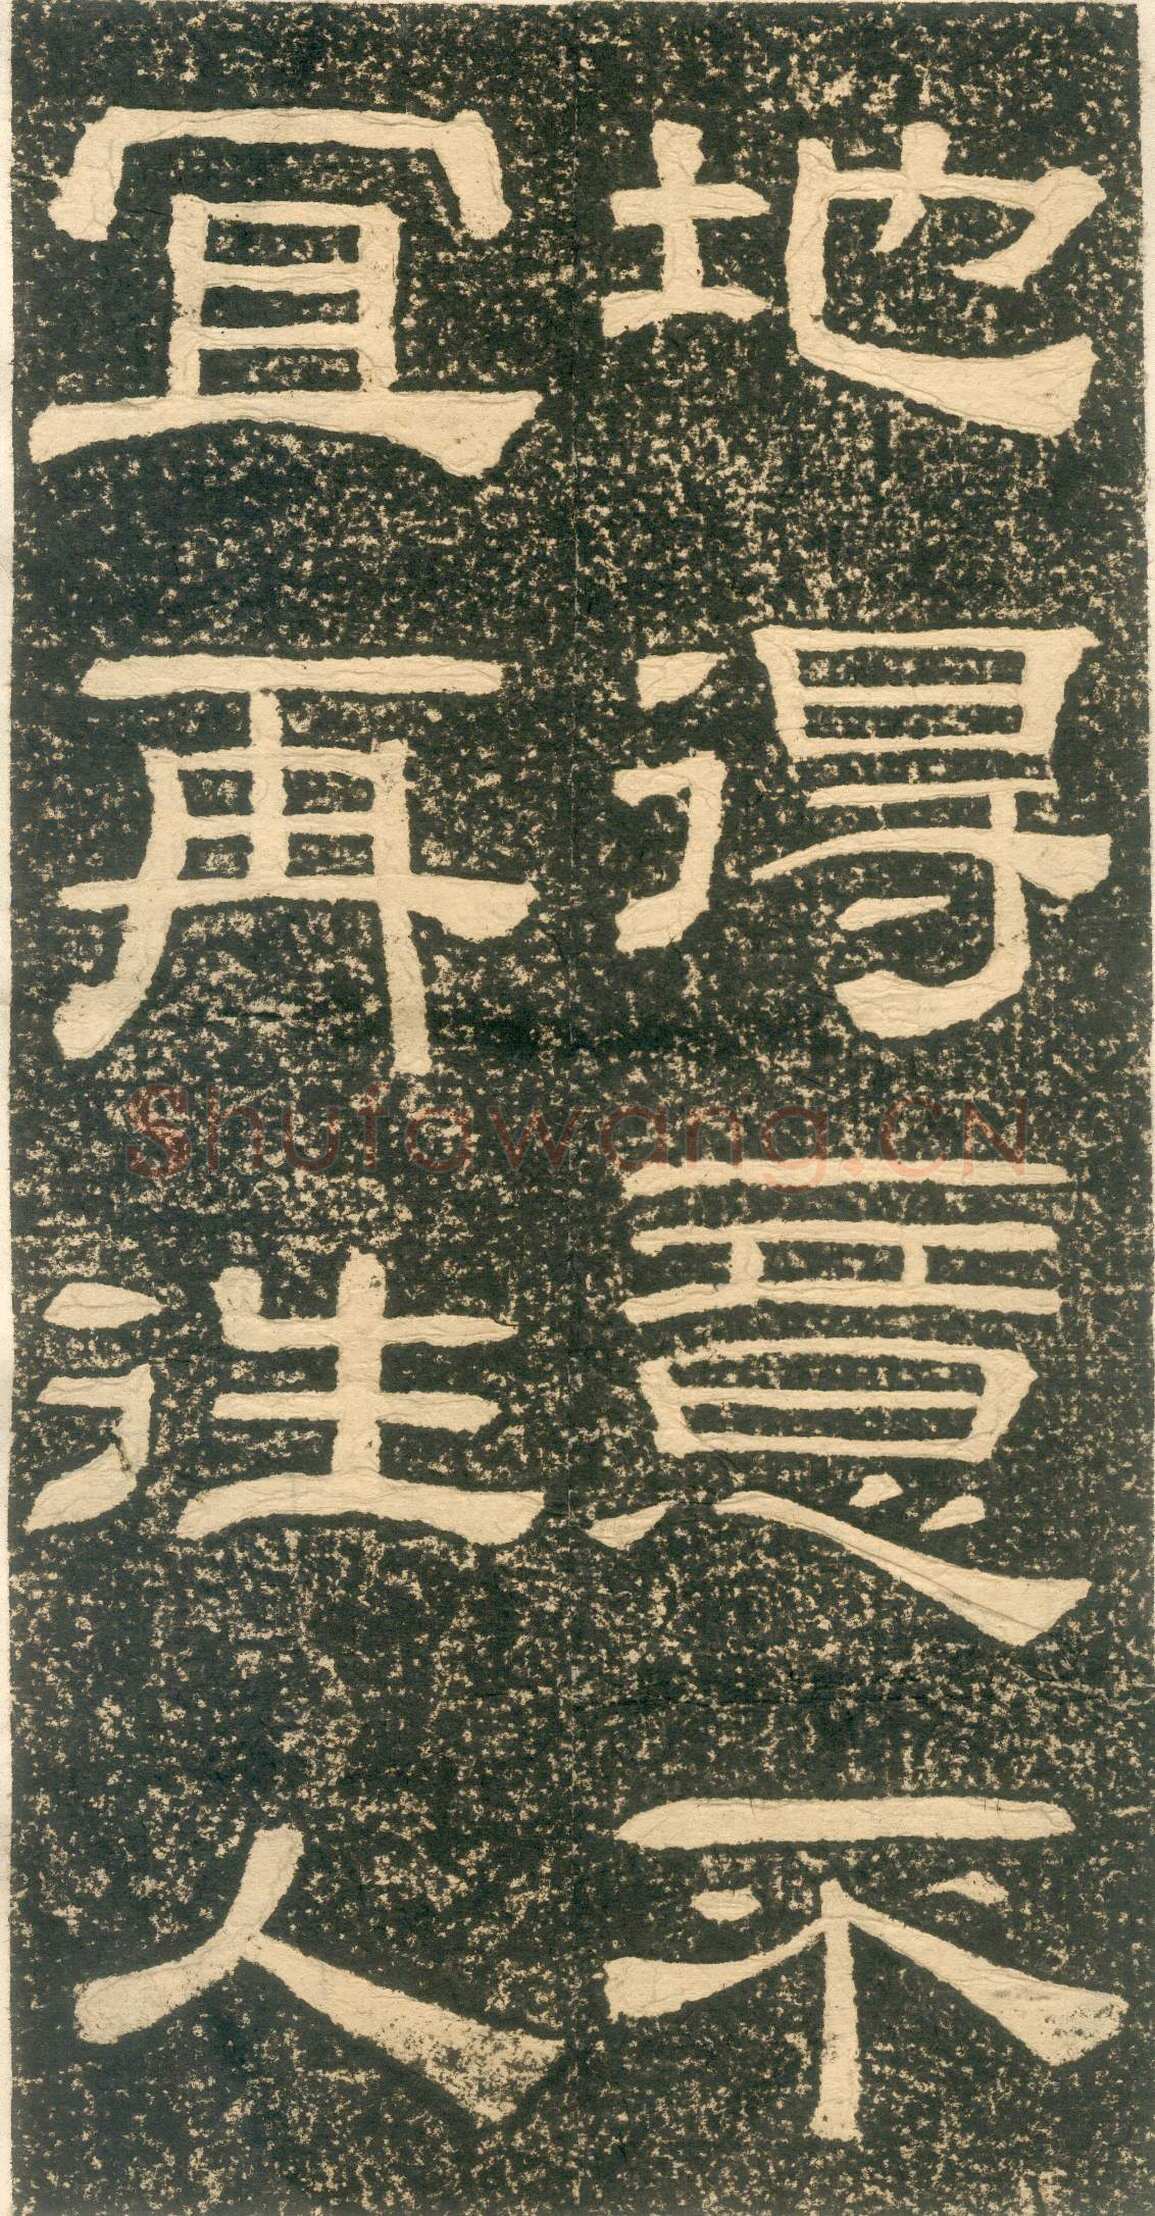 地得意不
宜再徃人
Shufawang.CN